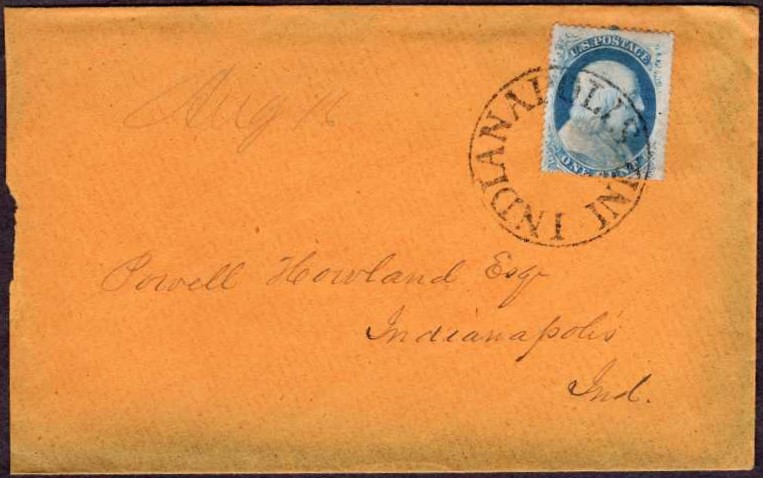 U.S. POSTAGE
ONE CENT
INDIANAPOLIS IND
Aug 16
Powell Howland Esqr
Indianapolis
Ind.